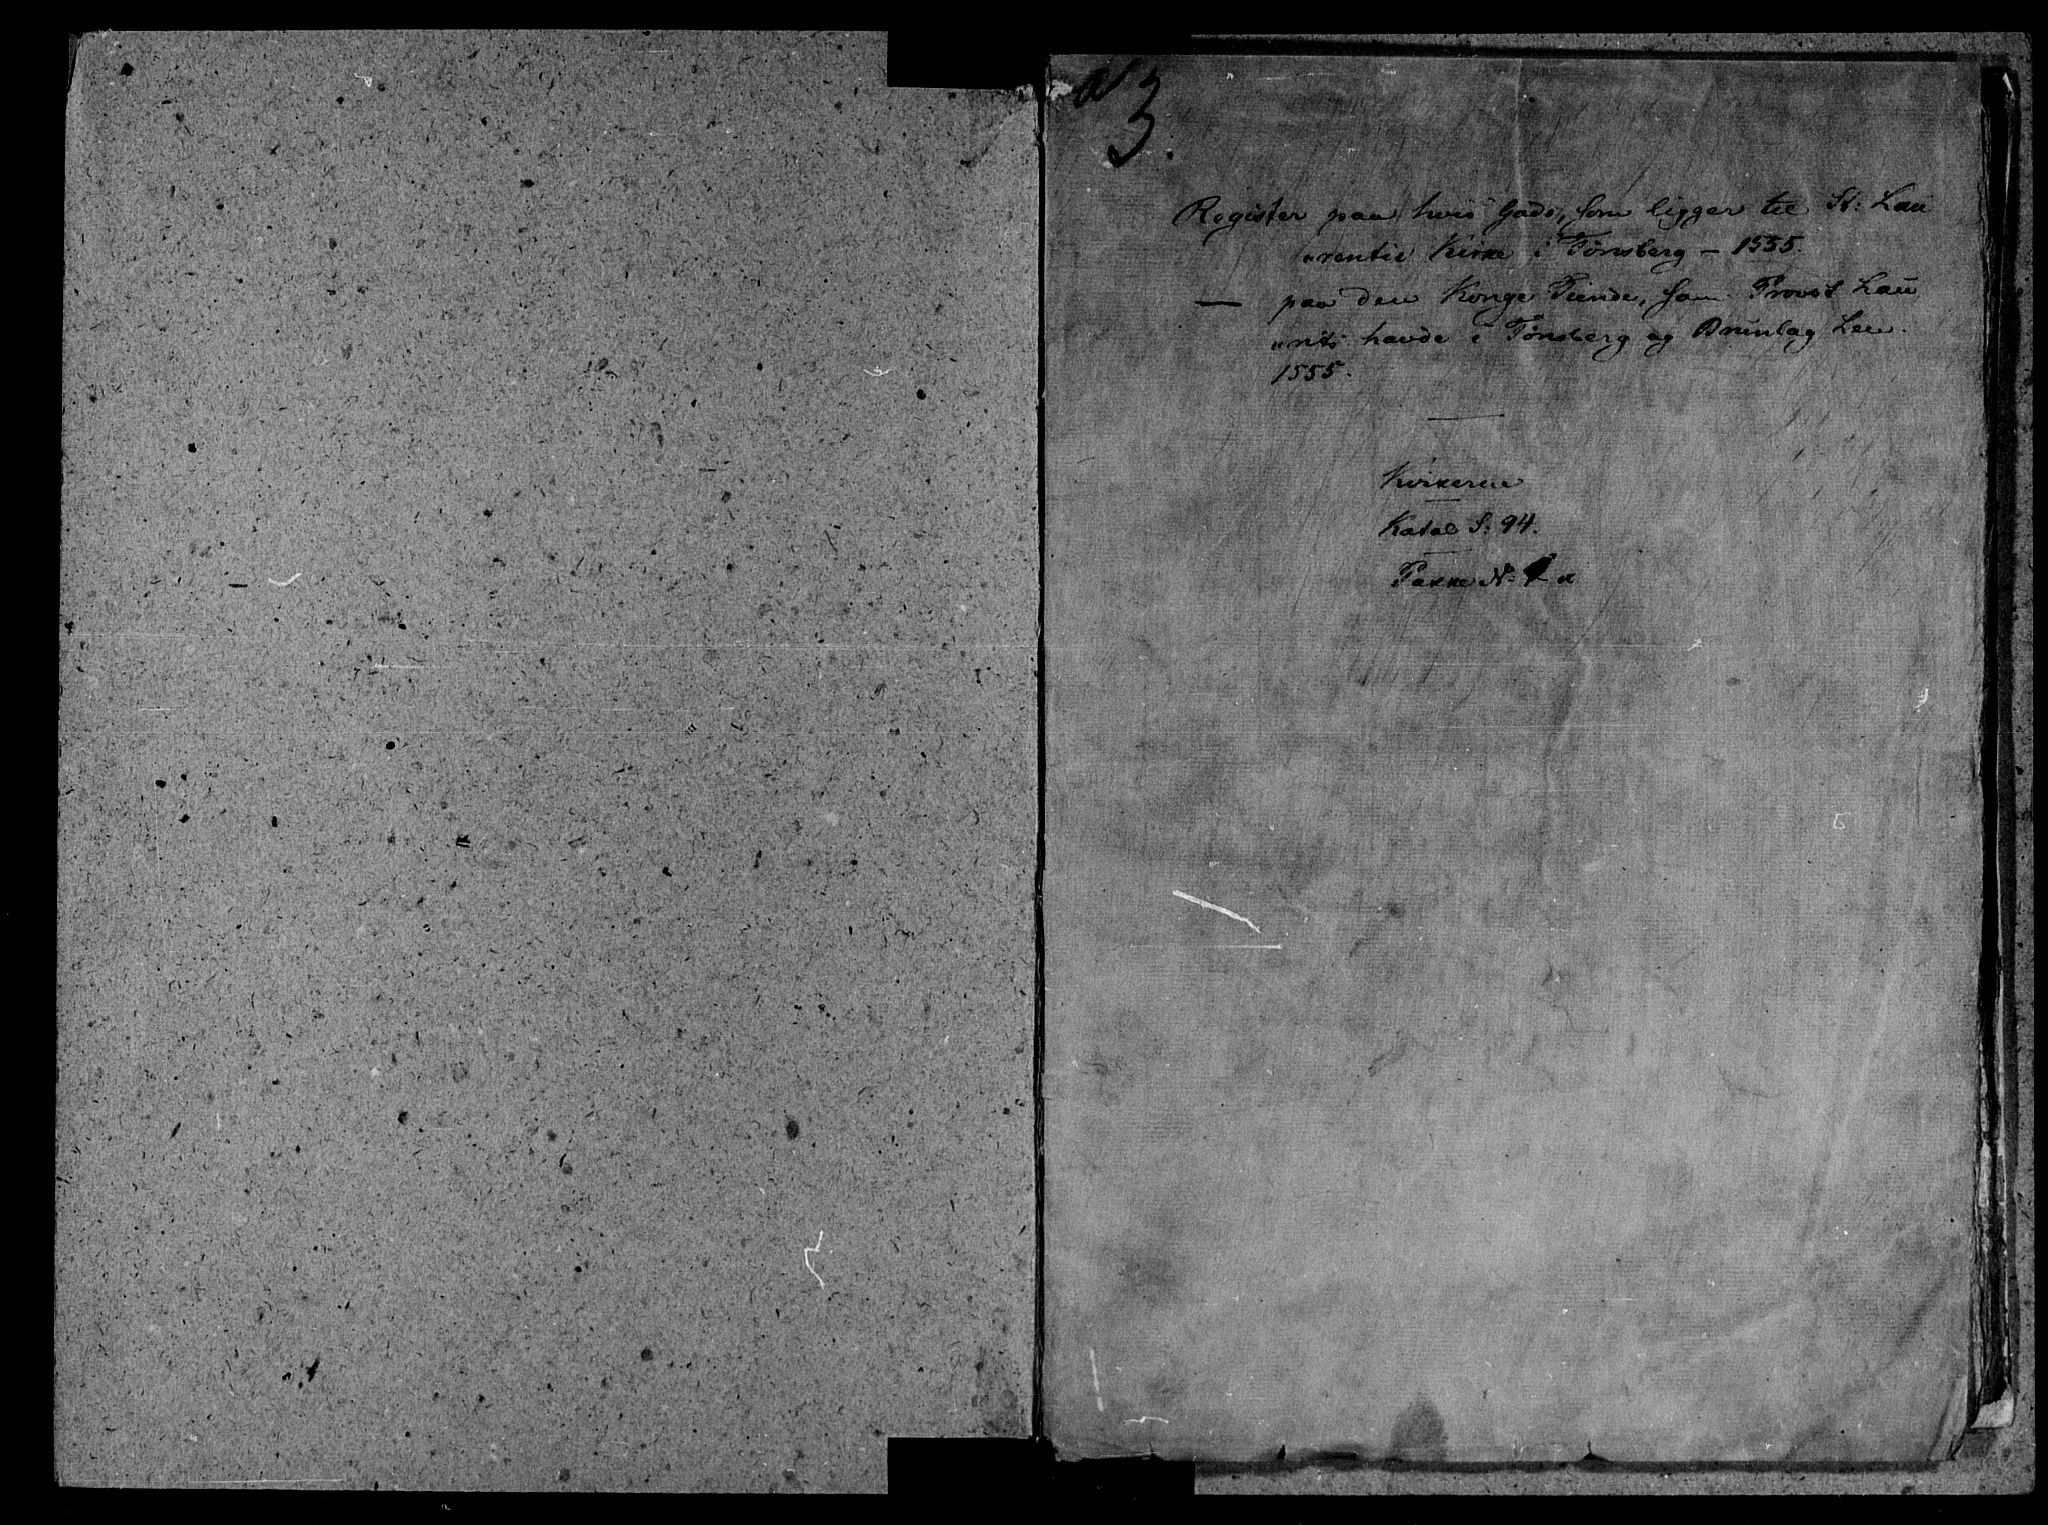 a 3.
Register paa hvis Gods, som ligger til St: Lau
„rentii Kirke i Tønsberg – 1555.
— paa den Konge Tiende, som Provst Lau
„rits havde i Tønsberg og Brunlag Len.
1555.
Katal S: 94.
Pakke N: